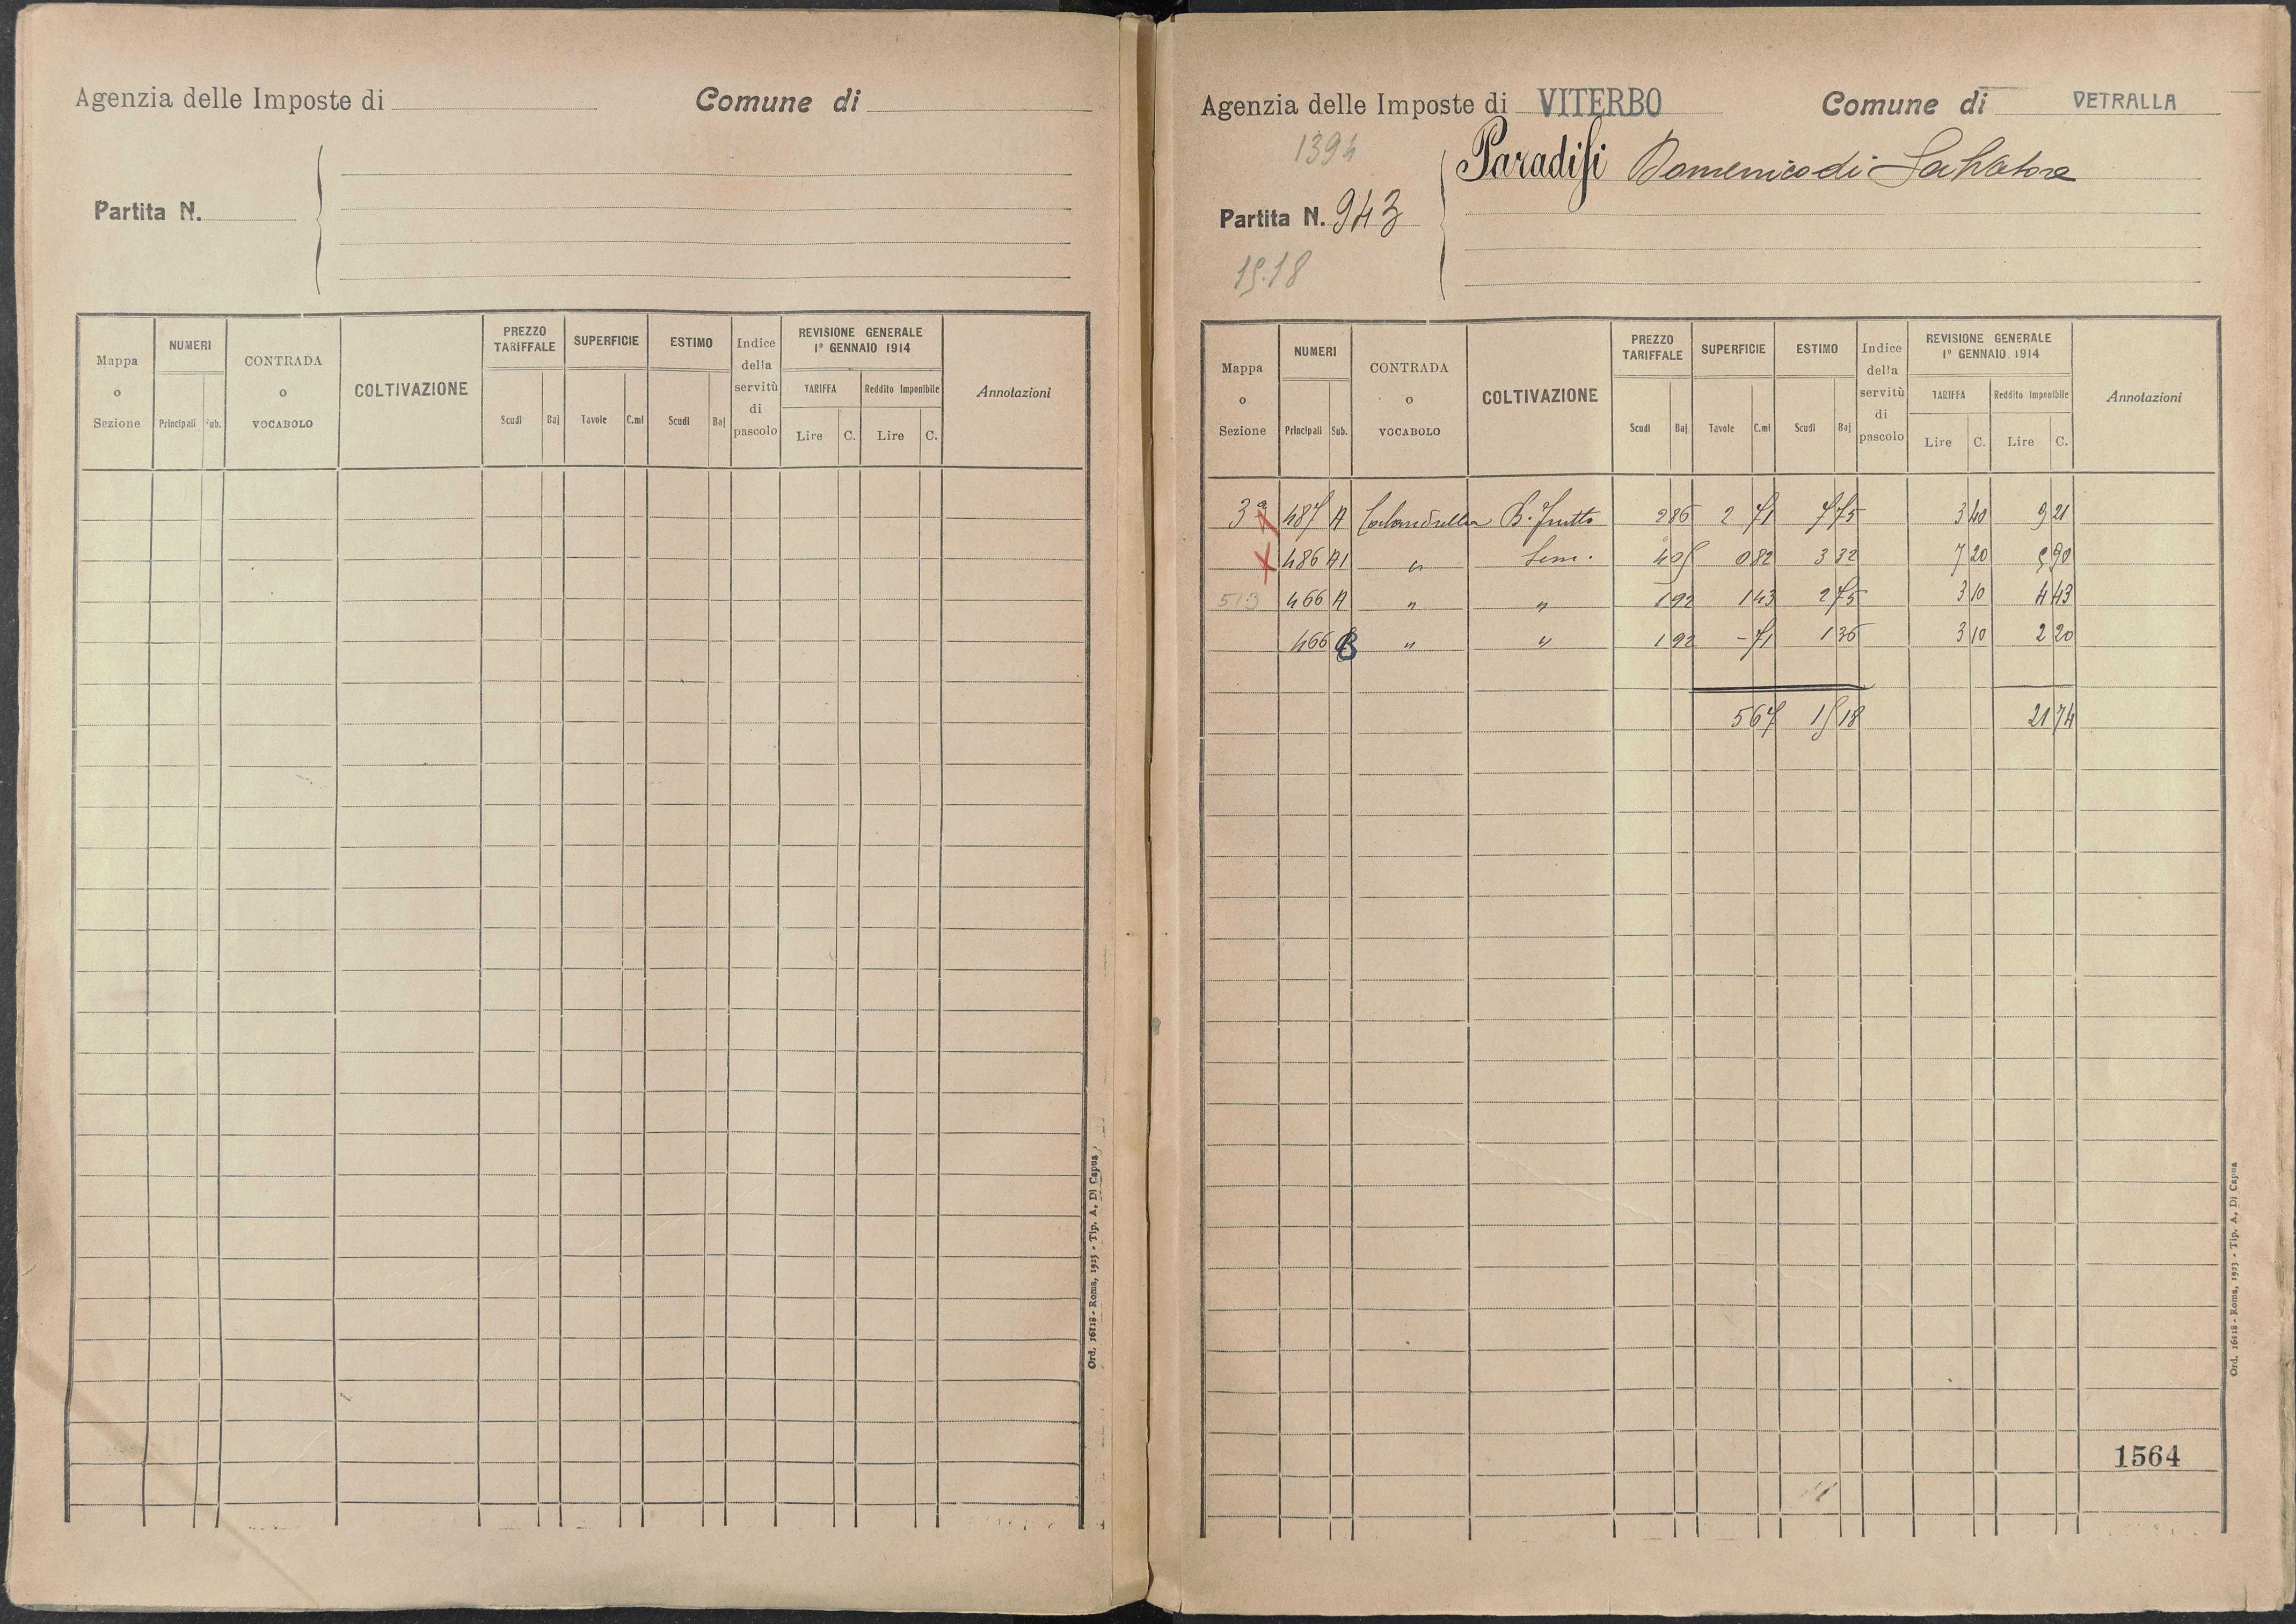 Agenzia delle Imposte di Comune di
Partita N.
Mappa o Sezione NUMERI Principali Sub. CONTRADA o VOCABOLO COLTIVAZIONE PREZZO TARIFFALE Scudi Baj SUPERFICIE Tavole C.mi ESTIMO Scudi Baj Indice della servitù di pascolo REVISIONE GENERALE 1° GENNAIO 1914 TARIFFA Lire C. Reddito Imponibile Lire C. Annotazioni
Ord. 16118 - Roma, 1923 - Tip. A. Di Capua
Agenzia delle Imposte di VITERBO Comune di VETRALLA
1394
Paradisi Domenico di Salvatore
Partita N. 943
15.18
Mappa o Sezione NUMERI Principali Sub. CONTRADA o VOCABOLO COLTIVAZIONE PREZZO TARIFFALE Scudi Baj SUPERFICIE Tavole C.mi ESTIMO Scudi Baj Indice della servitù di pascolo REVISIONE GENERALE 1° GENNAIO 1914 TARIFFA Lire C. Reddito Imponibile Lire C. Annotazioni
3ª 487 A Calandrella B. frutto 2 86 2 71 7 75 3 40 9 21
X 486 A1 " Sem. 4 05 0 82 3 32 7 20 5 90
513 466 A " " 1 92 1 43 2 75 3 10 4 43
466 B " " 1 92 - 71 1 36 3 10 2 20
5 67 15 18 21 74
1564
Ord. 16118 - Roma, 1923 - Tip. A. Di Capua